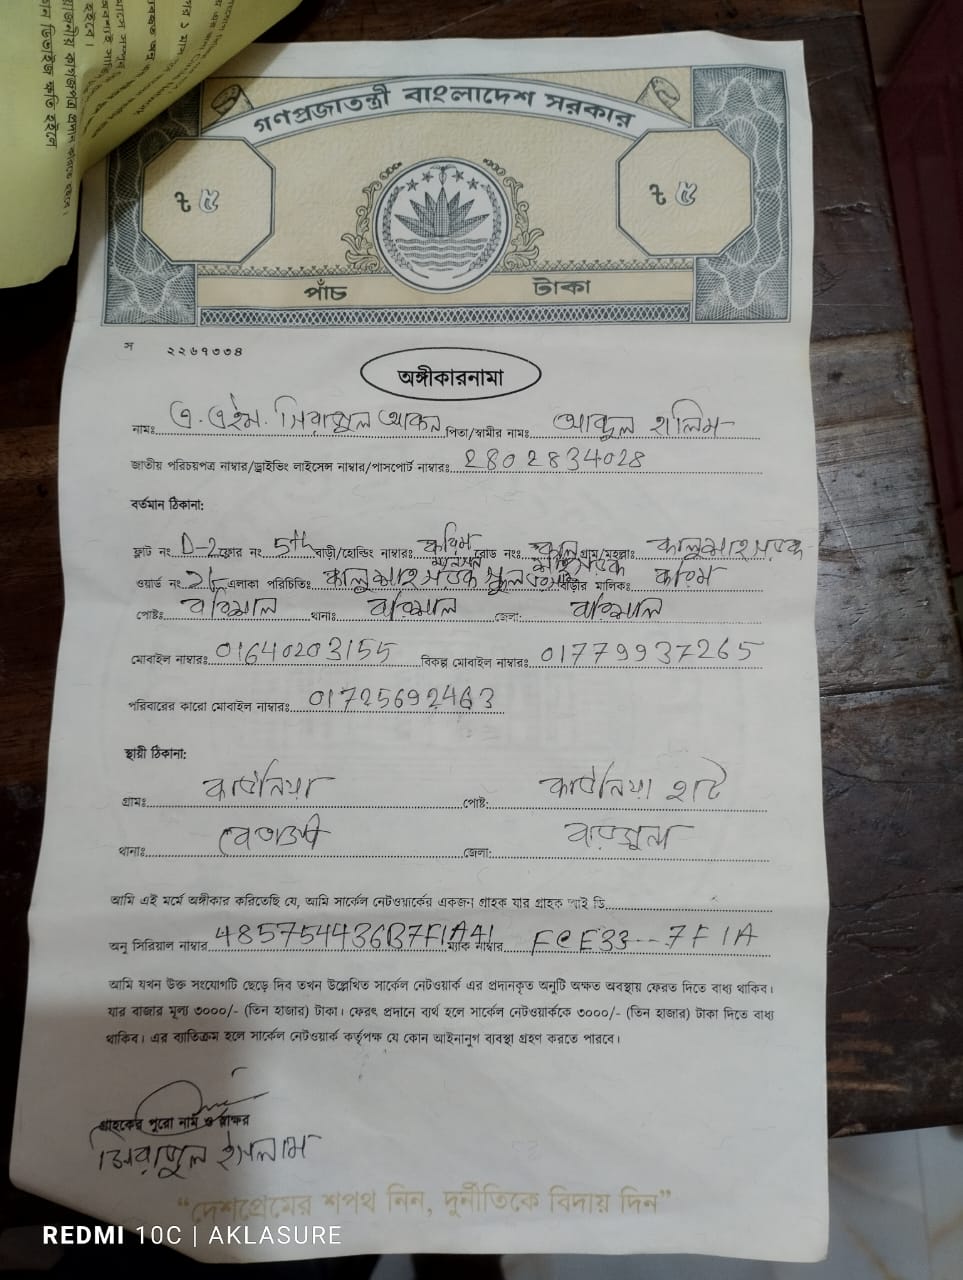 গণপ্রজাতন্ত্রী বাংলাদেশ সরকার
৳ ৫
৳ ৫
পাঁচ টাকা
স ২২৬৭৩৩৪
অঙ্গীকারনামা
নামঃ এ. এইম. সিরাজুল পিতা/স্বামীর নামঃ আব্দুল হালিম
জাতীয় পরিচয়পত্র নাম্বার/ড্রাইভিং লাইসেন্স নাম্বার/পাসপোর্ট নাম্বারঃ 2802834028
বর্তমান ঠিকানা:
ফ্লাট নং D-2 ফ্লোর নং 5th বাড়ী/হোল্ডিং নাম্বারঃ করিম রোড নংঃ গ্রাম/মহল্লাঃ কালুশাহ সড়ক
ওয়ার্ড নং এলাকা পরিচিতিঃ কালুশাহ সড়ক স্কুল বাড়ীর মালিকঃ করিম
পোষ্টঃ বরিশাল থানাঃ বরিশাল জেলা: বরিশাল
মোবাইল নাম্বারঃ 01640203155 বিকল্প মোবাইল নাম্বারঃ 01779937265
পরিবারের কারো মোবাইল নাম্বারঃ 01725692463
স্থায়ী ঠিকানা:
গ্রামঃ কাউনিয়া পোষ্ট: কাউনিয়া হাট
থানাঃ বেতাগী জেলা: বরগুনা
আমি এই মর্মে অঙ্গীকার করিতেছি যে, আমি সার্কেল নেটওয়ার্কের একজন গ্রাহক যার গ্রাহক আই ডি
অনু সিরিয়াল নাম্বার 485754436B7F1A41 ম্যাক নাম্বার FCE33---7F1A
আমি যখন উক্ত সংযোগটি ছেড়ে দিব তখন উল্লেখিত সার্কেল নেটওয়ার্ক এর প্রদানকৃত অনুটি অক্ষত অবস্থায় ফেরত দিতে বাধ্য থাকিব।
যার বাজার মূল্য ৩০০০/- (তিন হাজার) টাকা। ফেরৎ প্রদানে ব্যর্থ হলে সার্কেল নেটওয়ার্ককে ৩০০০/- (তিন হাজার) টাকা দিতে বাধ্য
থাকিব। এর ব্যতিক্রম হলে সার্কেল নেটওয়ার্ক কর্তৃপক্ষ যে কোন আইনানুগ ব্যবস্থা গ্রহণ করতে পারবে।
গ্রাহকের পুরো নাম ও স্বাক্ষর
সিরাজুল ইসলাম
“দেশপ্রেমের শপথ নিন, দুর্নীতিকে বিদায় দিন”
REDMI 10C | AKLASURE